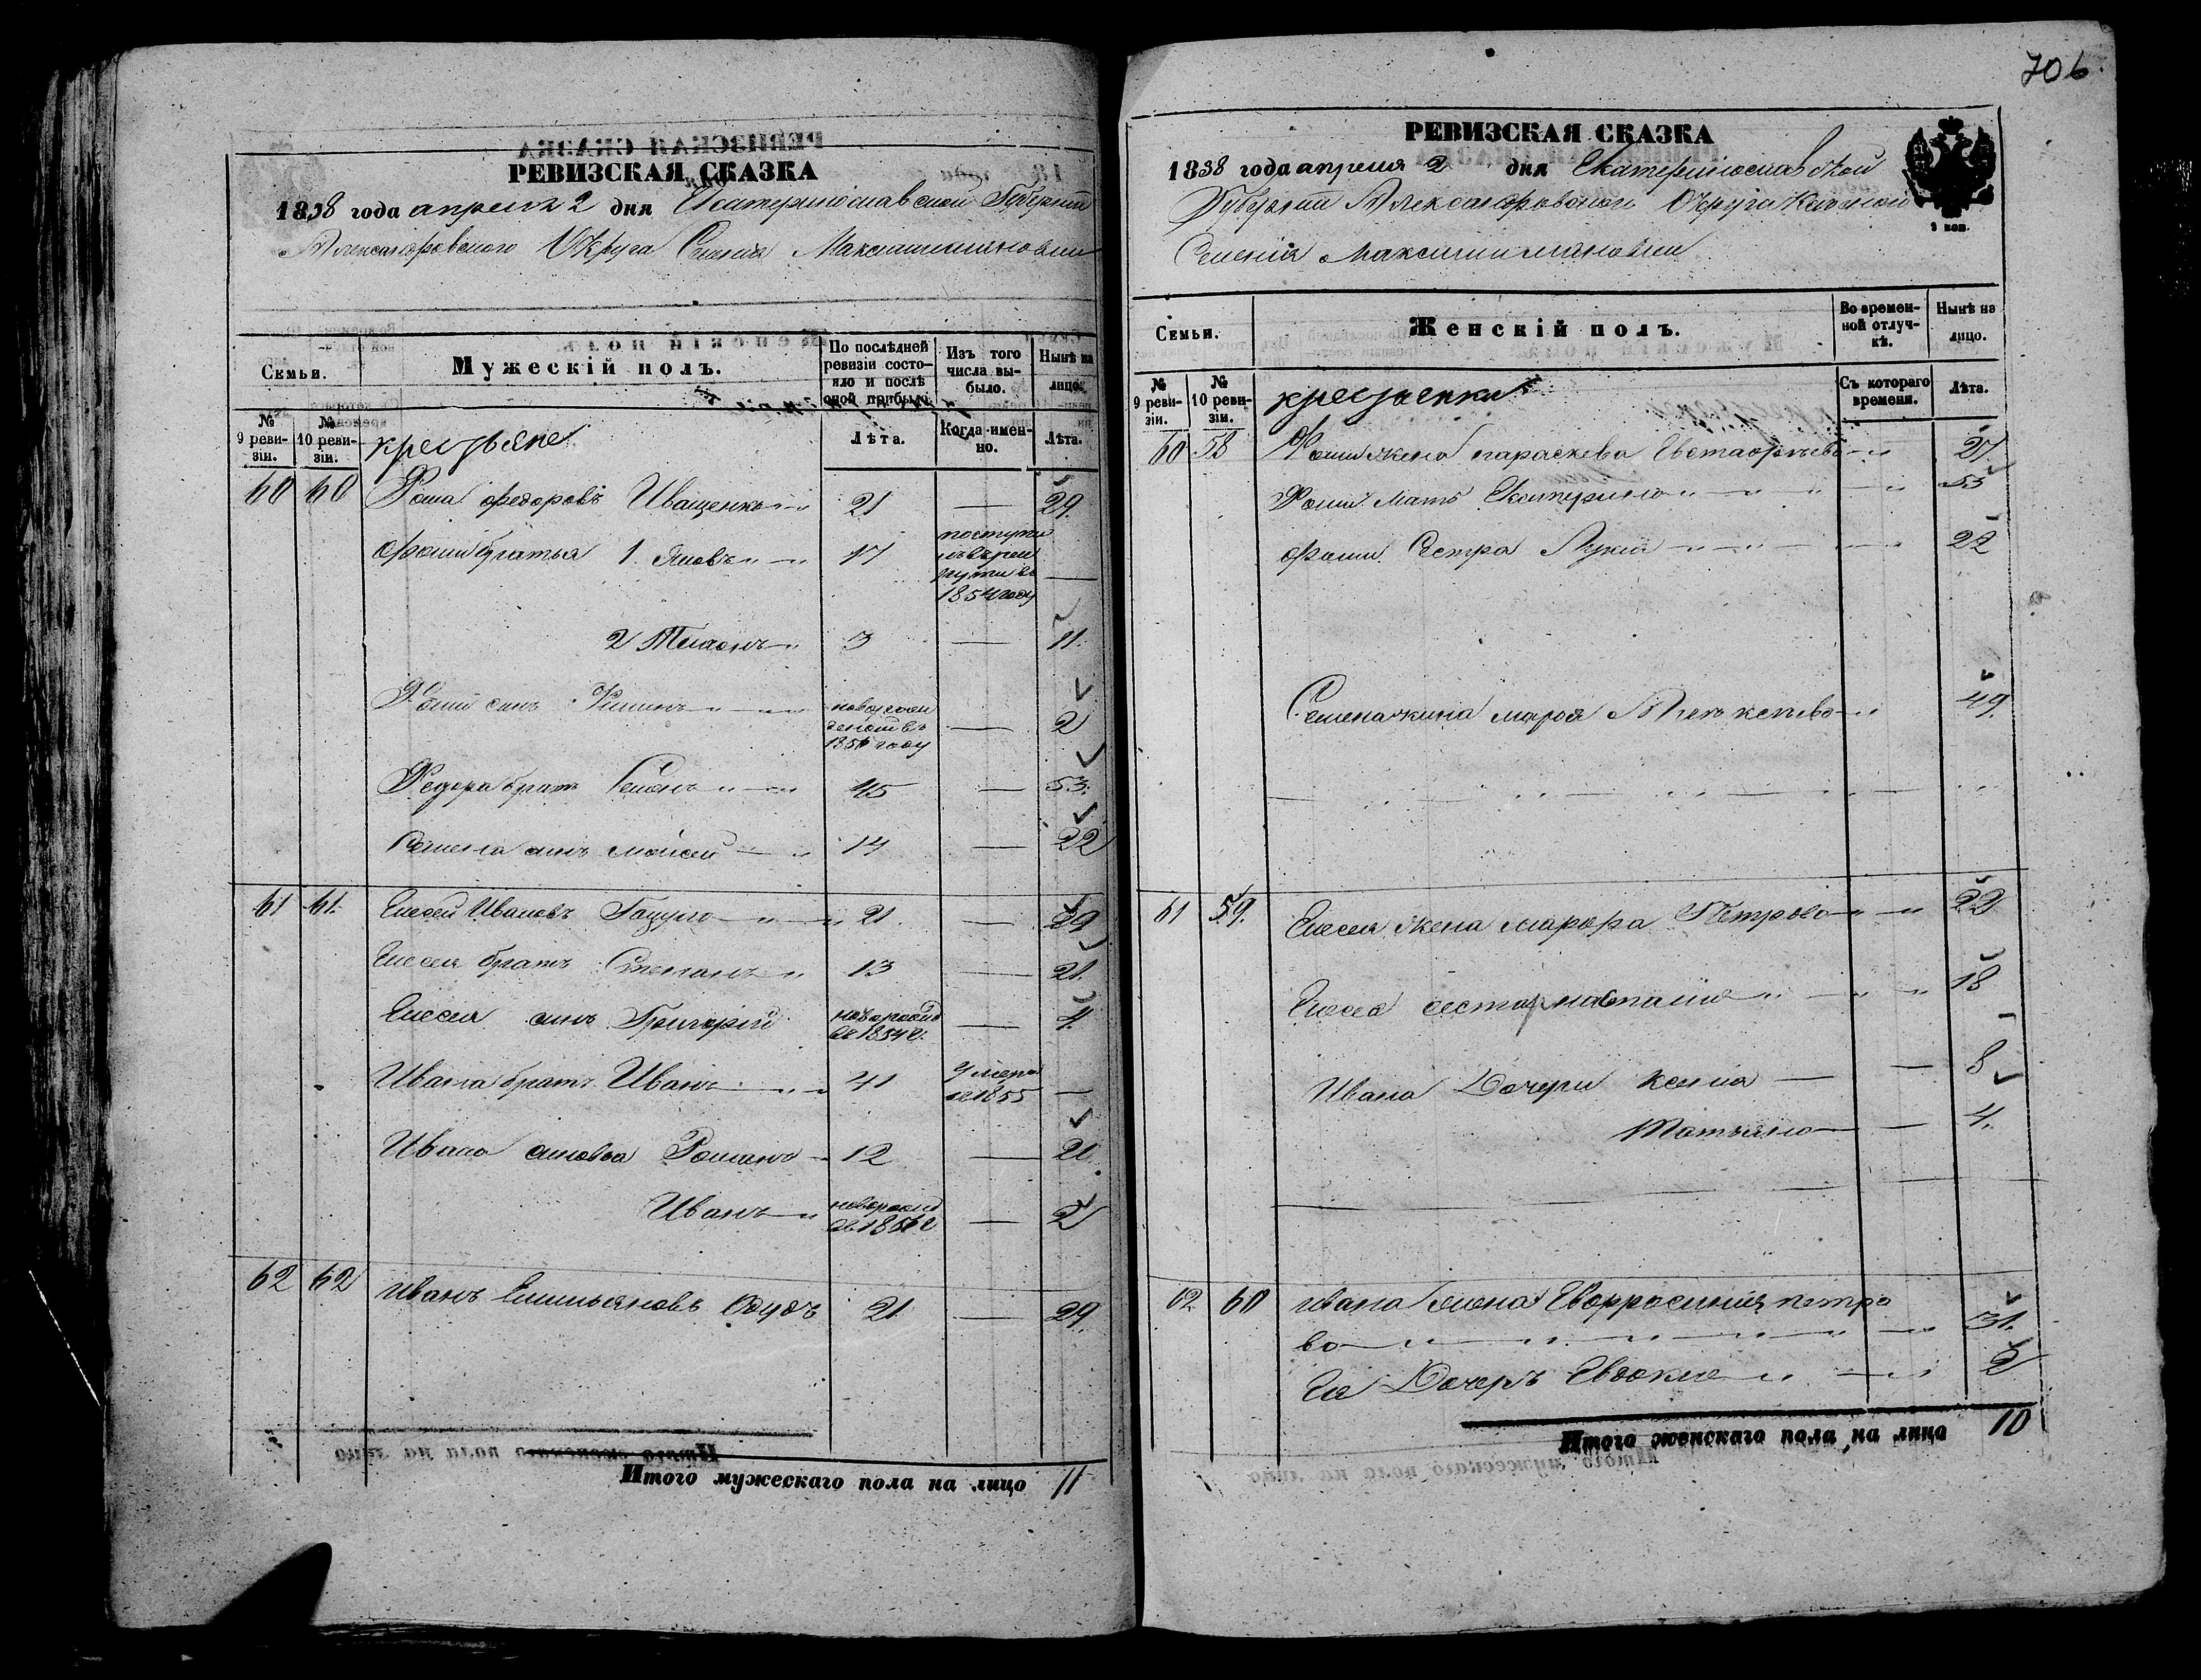 706.
РЕВИЗСКАЯ СКАЗКА
1858 года апреля 2 дня Екатеринославской Губернии
Александровского Округа Селения Максимилиановки
Семьи.
Мужескій полъ.
По послѣдней ревизіи состояло и послѣ оной прибыло.
Изъ того числа выбыло.
Нынѣ на лицо.
№ 9 ревизіи.
№ 10 ревизіи.
крестьяне
Лѣта.
Когда именно.
Лѣта.
60 60 Фома Федоровъ Иващенко 21 — 29.
Фоми братья 1 Яковъ 17 поступилъ в рекруты в 1854 году —
2 3 — 11.
Фоми синъ новорожденный въ 1856 году — 2
Федора братъ Семенъ 45 — 53.
Семена синъ Моисей 14 — 22
61 61. Елесей Ивановъ 21. — 29
Елесея братъ Степанъ 13 — 21.
Елесея синъ Григорій новорожд в 1854 г. — 4.
Ивана братъ Иванъ 41 умеръ в 1855 —
Ивана синовья Романъ 12 —
Иванъ новорожд в 1856 г — 2
62 62 Иванъ Емильяновъ 21. — 29.
Итого мужескаго пола на лицо 11
РЕВИЗСКАЯ СКАЗКА
1858 года апреля 2 дня Екатеринославской
Губернии Александровского Округа Казенной
Селения Максимилиановки
Семьи.
Женскій полъ.
Во временной отлучкѣ.
Нынѣ на лицо.
№ 9 ревизіи.
№ 10 ревизіи.
крестьянки
Съ котораго времени.
Лѣта.
60 58 Фоми жена параскева Евстафьева 27
Фоми мать Екатерина 55
Фоми Сестра Лукія 22
Семена жина марфя Алексѣева 49.
61 59. Елесея жена марфра Петрова 22
Елеса сестра 18
Ивана Дочери ксенія — 8
Татьяна — 4.
62 60 ивана жена Евфросинія петро
ва 31.
Ея Дочеръ Евдокия 2
Итого женскаго пола на лицо 10